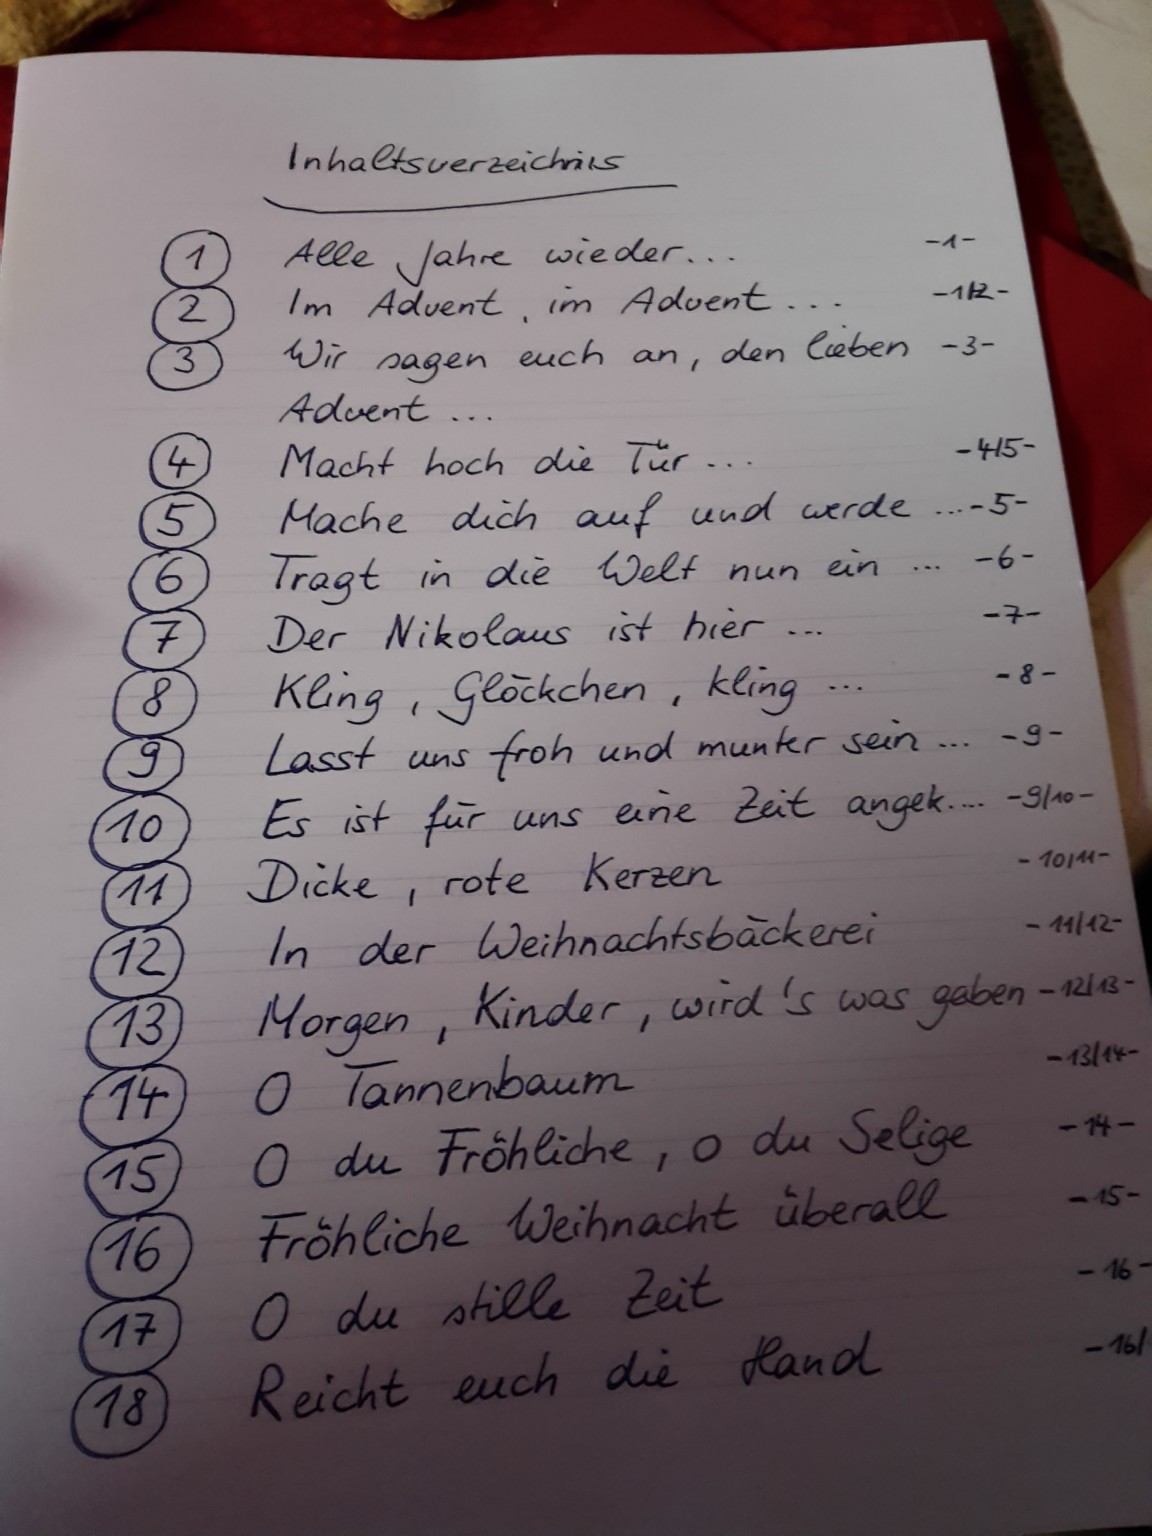 Inhaltsverzeichnis
1 Alle Jahre wieder... -1-
2 Im Advent, im Advent... -1/2-
3 Wir sagen euch an, den lieben -3-
Advent...
4 Macht hoch die Tür... -4/5-
5 Mache dich auf und werde ... -5-
6 Tragt in die Welt nun ein ... -6-
7 Der Nikolaus ist hier ... -7-
8 Kling, Glöckchen, kling ... -8-
9 Lasst uns froh und munter sein ... -9-
10 Es ist für uns eine Zeit angek.... -9/10-
11 Dicke, rote Kerzen -10/11-
12 In der Weihnachtsbäckerei -11/12-
13 Morgen, Kinder, wird's was geben -12/13-
14 O Tannenbaum -13/14-
15 O du Fröhliche, o du Selige -14-
16 Fröhliche Weihnacht überall -15-
17 O du stille Zeit -16-
18 Reicht euch die Hand -16/